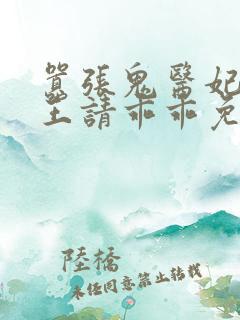 囂張鬼醫妃
王請乖乖免
陸橋
未经同意禁止转载